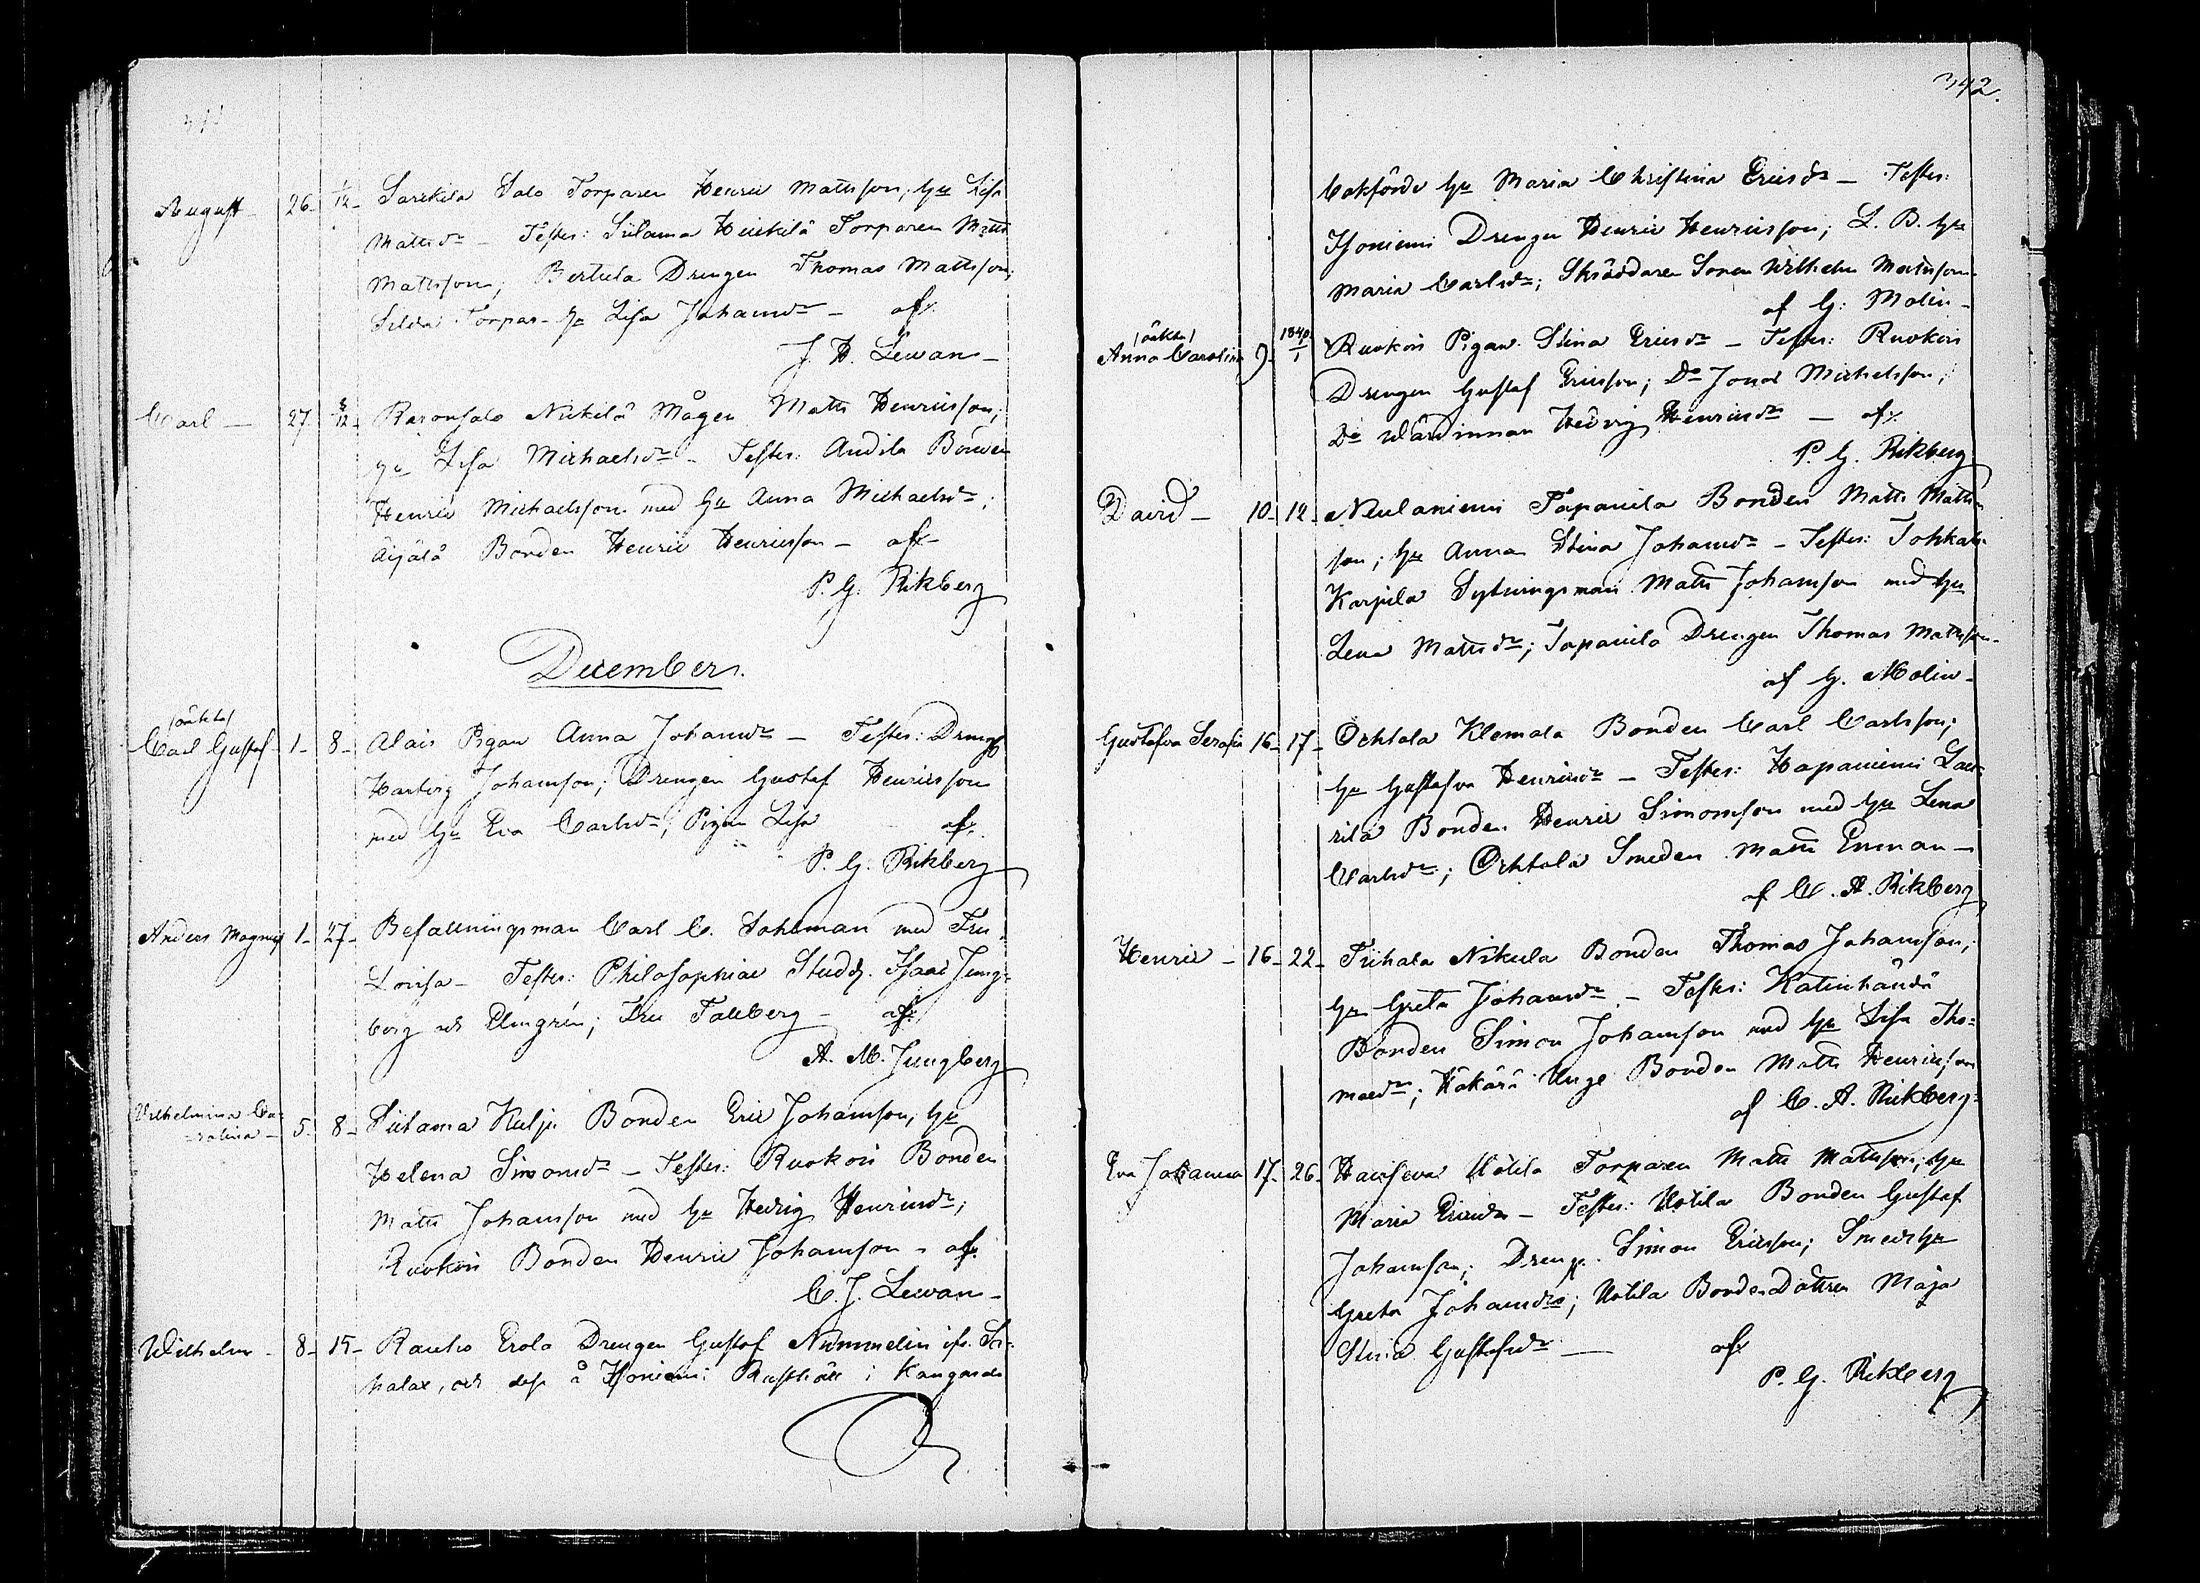 341
August 26 1/12 Sarikila Salo Torparen Henric Mattsson; hu Lisa
Mattsdr – Testes: Sulama Heickilä Torparen Matts
Mattsson; Bertula Drengen Thomas Mattsson;
Torpar- hu Lisa Johansdr – af:
J. H. Lewan –
Carl – 27. 8/12 Raronsalo Nickilä Mågen Matts Henricsson;
hu Lisa Michaelsdr – Testes: Andila Bonden
Henric Michaelsson med hu Anna Michaelsdr;
Äijälä Bonden Henric Henricsson – af:
P. G. Rikberg
December.
/oäkta/
Carl Gustaf – 1 – 8 – Alais Pigan Anna Johansdr – Testes: Dreng
Hartvig Johansson; Drengen Gustaf Henricsson
med hu Eva Carlsdr; Pigan Lisa af:
P. G. Rikberg
Anders Magnus 1 – 27 – Befallningsman Carl C. Sohlman med Fru
Lovisa – Testes: Philosophiae Studd. Isaac Jung-
berg och Elmgrén; Fru Fallberg – af:
A. M. Jungberg
Wilhelmina Ca-
rolina – 5 – 8 – Sulama Kulju Bonden Eric Johansson; hu
Helena Simonsdr – Testes: Ruokois Bonden
Matts Johansson med hu Hedvig Henricsdr;
Ruokois Bonden Henric Johansson – af:
C. J. Lewan –
Wilhelm – 8 – 15 – Rauho Erola Drengen Gustaf Nummelin ifr. Sa-
halax, och dess å Isoniemi Rusthåll i Kangasala
342.
hu Maria Christina Ericsdr – Testes:
Isoniemi Drengen Henric Henricsson; L. B. hu
Maria Carlsdr; Skräddaren Sonen Wilhelm Mattsson
af G. Molin –
/oäkta/
Anna Carolina 9 – 1840/1 Ruokois Pigan Stina Ericsdr – Testes: Ruokois
Drengen Gustaf Ericsson; Do Jonas Michelsson;
Do Wärdinnan Hedvig Henricsdr – af:
P. G. Rikberg
David – 10 – 12 – Neulaniemi Tapanila Bonden Matts Matts-
son; hu Anna Stina Johansdr – Testes: Tohkala
Karjula Sytningsman Matts Johansson med hu
Lena Mattsdr; Tapanila Drengen Thomas Mattsson –
af G. Molin –
Gustafva Serafia 16 – 17 – Ochtola Klemola Bonden Carl Carlsson;
hu Gustafva Henricsdr – Testes: Hapaniemi Lau-
rila Bonden Henric Simonsson med hu Lena
Carlsdr; Ochtola Smeden Matts Enman –
af C. A. Rikberg
Henric – 16 – 22 – Tiihala Nikula Bonden Thomas Johansson;
hu Greta Johansdr – Testes: Katinhändä
Bonden Simon Johansson med hu Lisa Tho-
masdr; Häkärä Unge Bonden Matts Henricsson
af C. A. Rikberg
Eva Johanna 17 – 26 – Uotila Torparen Matts Mattsson; hu
Maria Ericsdr – Testes: Uotila Bonden Gustaf
Johansson; Dreng. Simon Ericsson; Smeds hu
Greta Johansdr; Uotila BondenDottren Maja
Stina Gustafsdr – af
P. G. Rikberg